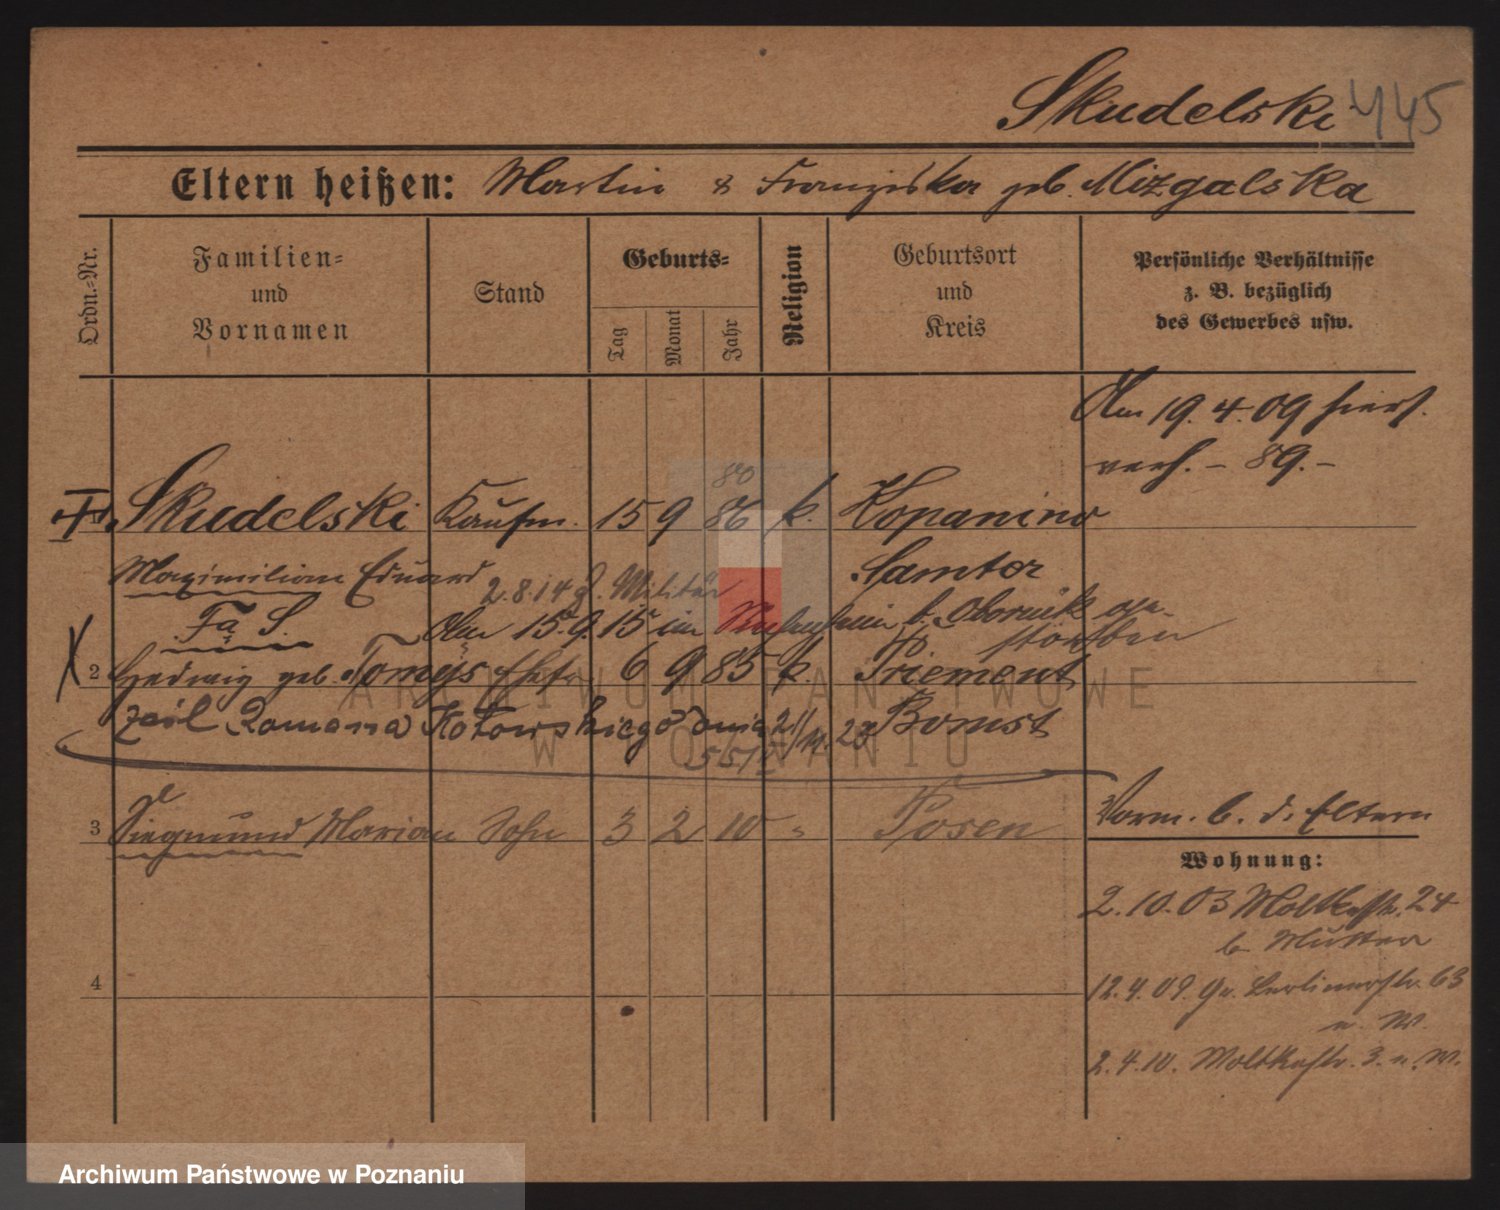 Skudelski 445
Eltern heißen: Martin & Franziska geb. Mizgalska
Ordn.-Nr.
Familien- und Vornamen
Stand
Geburts-
Tag
Monat
Jahr
Religion
Geburtsort und Kreis
Persönliche Verhältnisse
z. B. bezüglich
des Gewerbes usw.
Am 19.4.09 hiers.
verh. – 89. –
80
Skudelski Kaufm. 15 9 86 k. Kopanino
Maximilian Eduard Samter
2.8.14 z. Militär
Fa S.
Am 15.9.15 im b. Obornik ge-
storben
2 Hedwig geb. Tomÿs Ehefr. 6 9 85 k. Priement
Romana Kotowskiego dnia 21/11.23 Bomst
3 Siegmund Marian Sohn 3 2 10 " Posen
Vorm. b. d. Eltern
Wohnung:
2.10.03 Moltkestr. 24
b Mutter
12.4.09. Gr. Berlinerstr. 63
n. W.
4
2.4.10. Moltkestr. 3. n. W.
ARCHIWUM PAŃSTWOWE
W POZNANIU
Archiwum Państwowe w Poznaniu